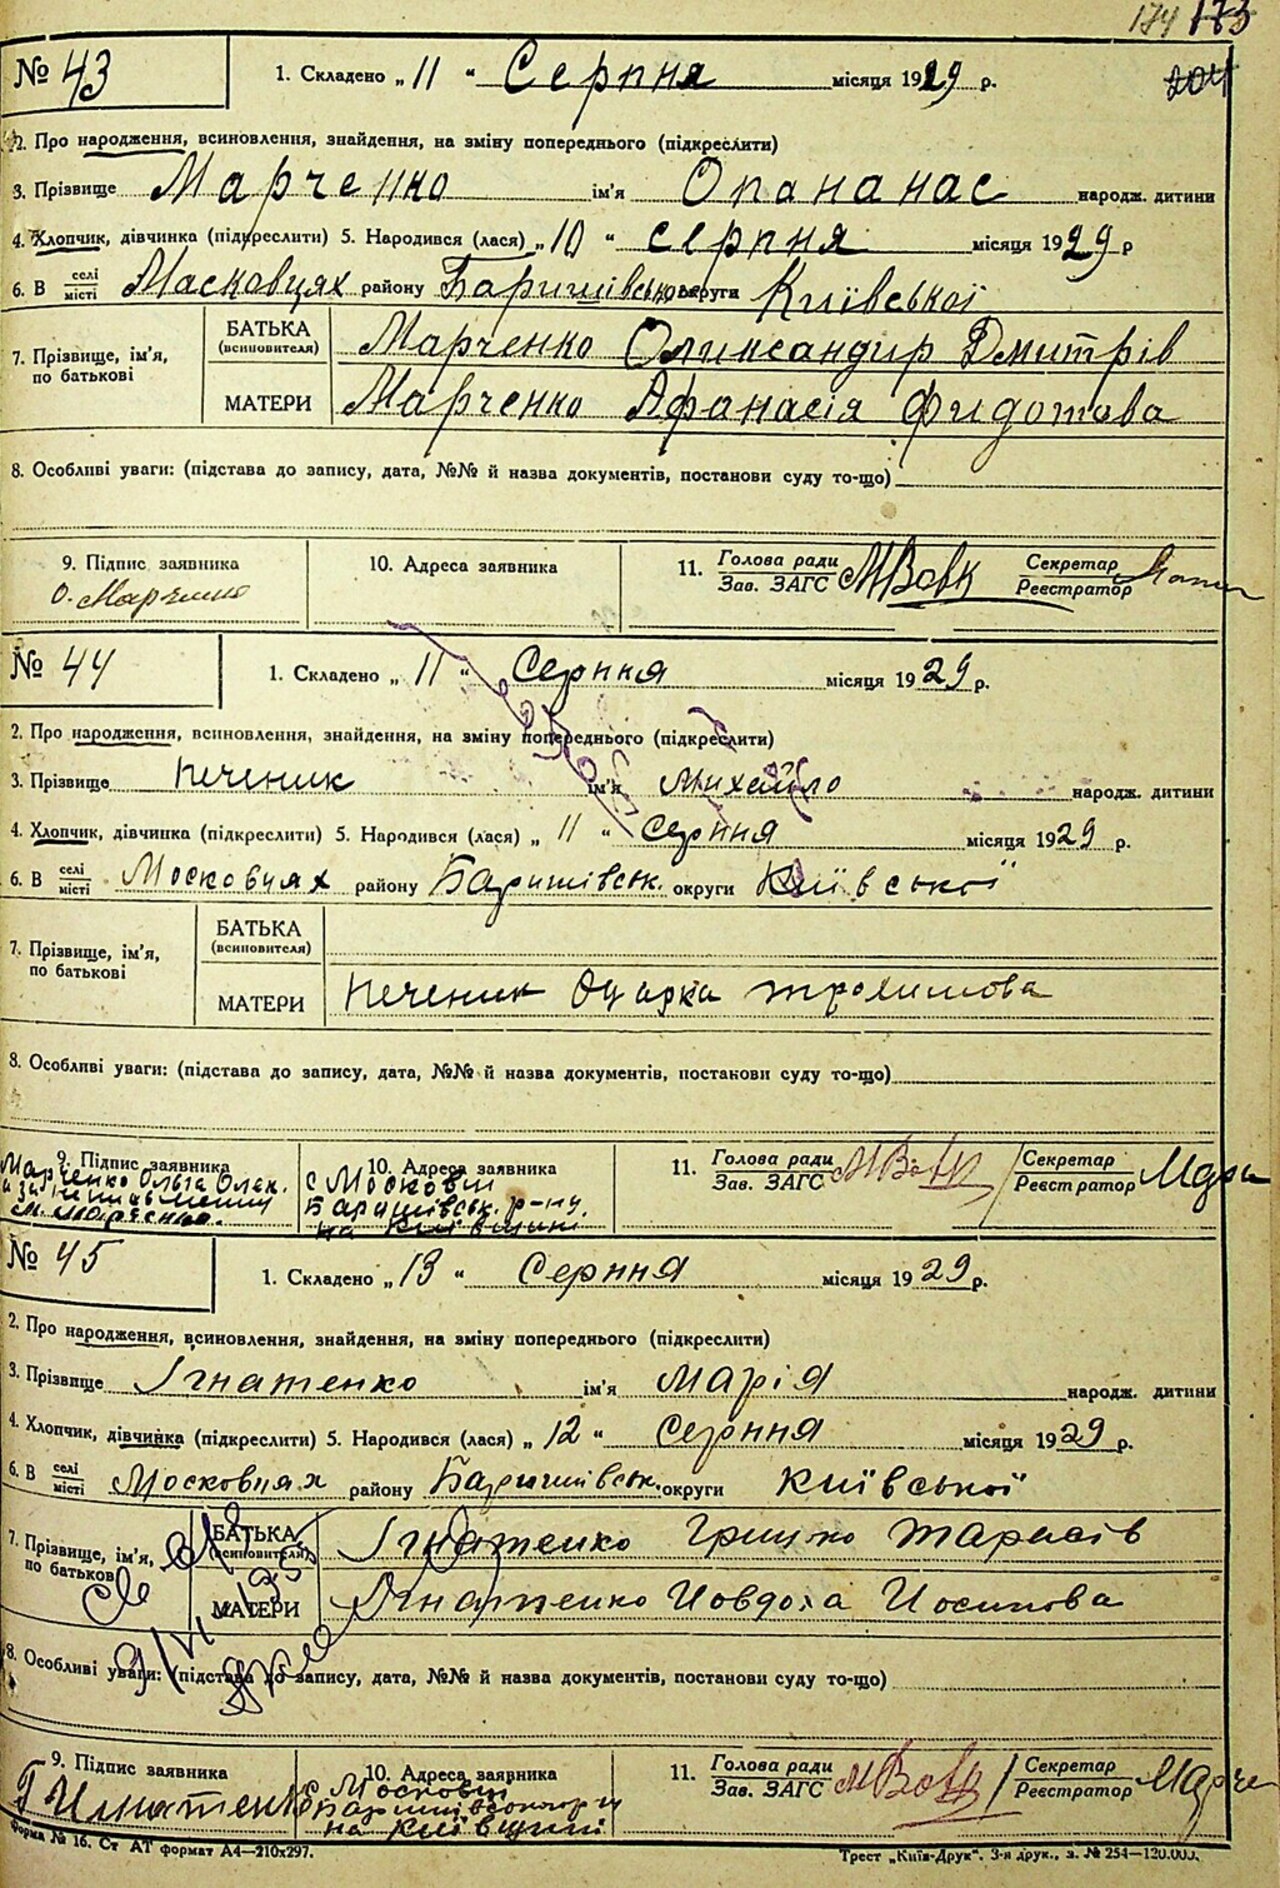 174 173
204
№ 43
1. Складено „ 11 “ Серпня місяця 1929 р.
2. Про народження, всиновлення, знайдення, на зміну попереднього (підкреслити)
3. Прізвище Марченко ім'я Опананас народж. дитини
4. Хлопчик, дівчинка (підкреслити) 5. Народився (лася) „ 10 “ серпня місяця 1929 р
6. В селі місті Масковцях району Баришівсько округи Київської
7. Прізвище, ім'я, по батькові
БАТЬКА (всиновителя) Марченко Олександир Дмитрів
МАТЕРИ Марченко Афанасія Фидотова
8. Особливі уваги: (підстава до запису, дата, №№ й назва документів, постанови суду то-що)
9. Підпис заявника 10. Адреса заявника 11. Голова ради Зав. ЗАГС МВовк Секретар Реєстратор
О. Марченко
№ 44
1. Складено „ 11 “ Серпня місяця 1929 р.
2. Про народження, всиновлення, знайдення, на зміну попереднього (підкреслити)
3. Прізвище Печеник ім'я Михайло народж. дитини
4. Хлопчик, дівчинка (підкреслити) 5. Народився (лася) „ 11 “ Серпня місяця 1929 р.
6. В селі місті Московцях району Баришівськ. округи Київської
7. Прізвище, ім'я, по батькові
БАТЬКА (всиновителя)
МАТЕРИ Печеник Оцарка трохимова
8. Особливі уваги: (підстава до запису, дата, №№ й назва документів, постанови суду то-що)
9. Підпис заявника 10. Адреса заявника 11. Голова ради Зав. ЗАГС МВовк Секретар Реєстратор
Марченко Ольга Олек.
с Московці
Баришівськ. р-ну.
на Київщині
№ 45
1. Складено „ 13 “ Серпня місяця 1929 р.
2. Про народження, всиновлення, знайдення, на зміну попереднього (підкреслити)
3. Прізвище Ігнатенко ім'я Марія народж. дитини
4. Хлопчик, дівчинка (підкреслити) 5. Народився (лася) „ 12 “ Серпня місяця 1929 р.
6. В селі місті Московцях району Баришівськ. округи Київської
7. Прізвище, ім'я, по батькові
БАТЬКА (всиновителя) Ігнатенко Грицко Тарасів
МАТЕРИ Ігнатенко Йовдоха Йосипова
8. Особливі уваги: (підстава до запису, дата, №№ й назва документів, постанови суду то-що)
9. Підпис заявника 10. Адреса заявника 11. Голова ради Зав. ЗАГС МВовк Секретар Реєстратор
Г Игнатенко
с Московці
на Київщині
Форма № 16. Ст АТ формат А4—210х297. Трест „Київ-Друк“. 3-я друк., з. № 254—120.000.